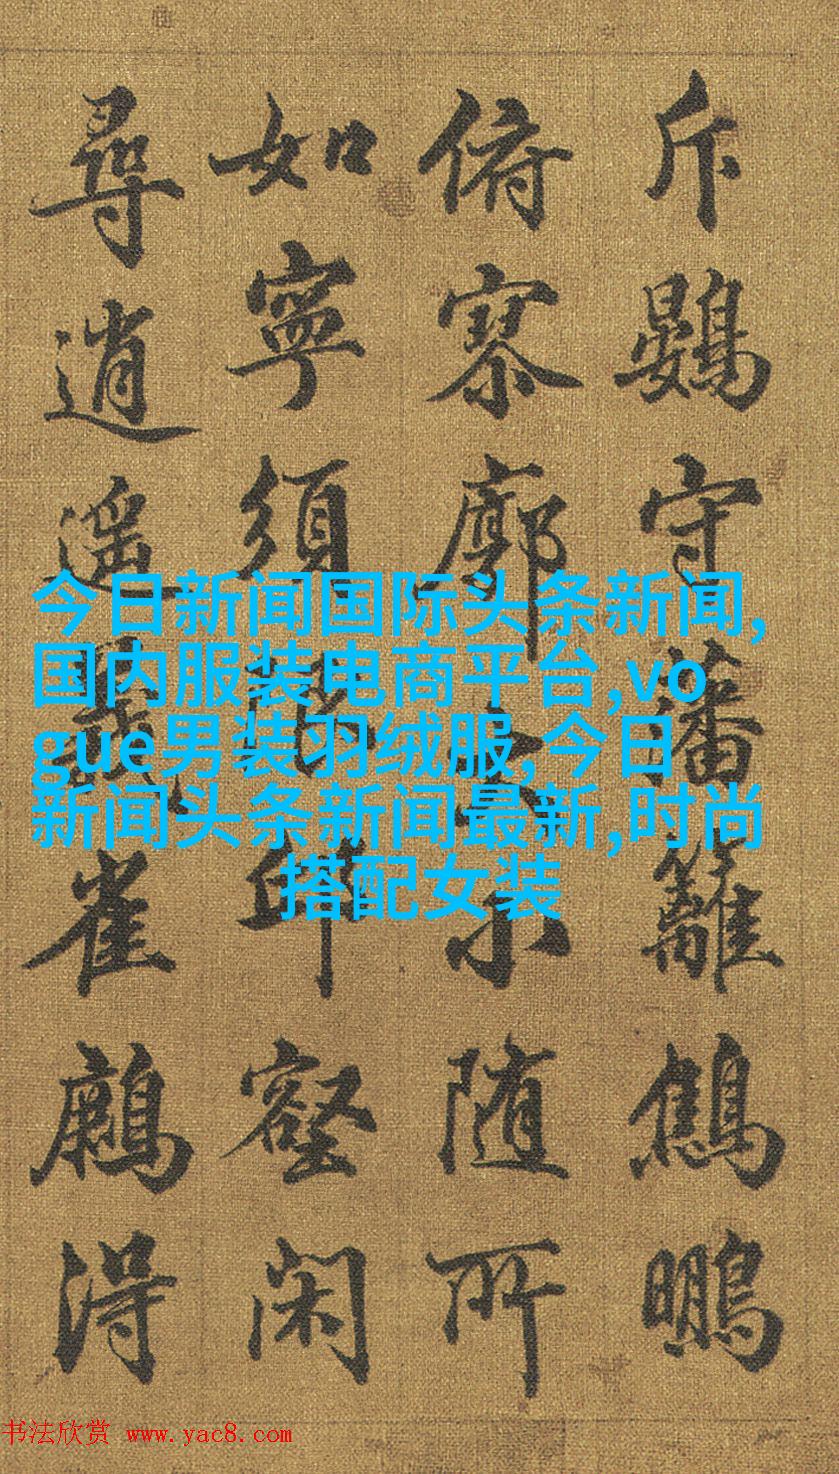 斥鷃守藩籬鷦鵬
俯寥廓大小随所
如寧須邱壑閑
尋逍遥雀得
今日新闻国际头条新闻,
国内服装电商平台,vo
gue男装羽绒服,今日
新闻头条新闻最新,时尚
搭配女装
书法欣赏 www.yac8.com